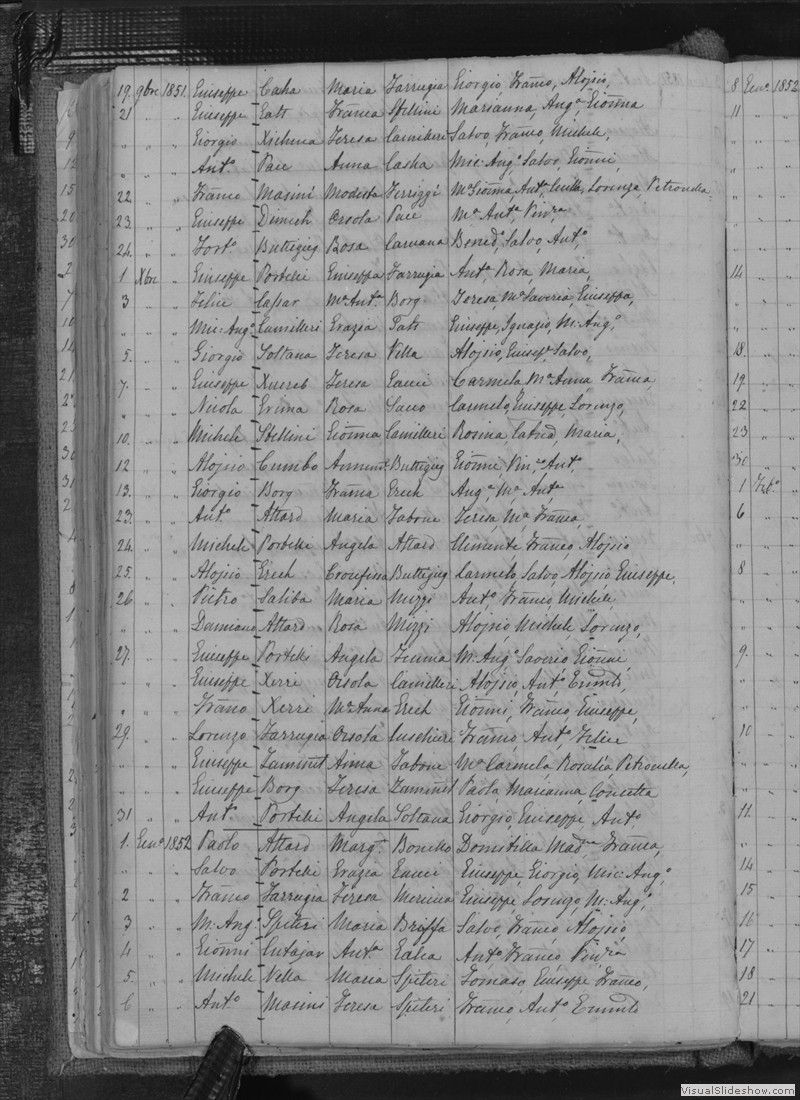 19. 9bre 1851. Giuseppe Casha Maria Farrugia Giorgio, Franco, Aloisio,
21 " " Giuseppe Gatt Franca Stellini Marianna, Anga Gionna
" " Giorgio Xichma Teresa Camilleri Salvo, Franco, Michele,
" " Anto Pace Anna Casha Mic: Ango Salvo, Gionni,
22 " " Franco Masini Modesta Ma Gionna, Anta Lorenza, Petronilla
23. " " Giuseppe Dimech Orsola Pace Ma Anta Vinza
24. " " Forto Buttigieg Rosa Caruana Bened: Salvo, Anto,
1 Xbre " Giuseppe Portelli Giuseppa Farrugia Anta Rosa, Maria,
3 " " Felice Cassar Ma Anta Borg Teresa, Ma Saveria, Giuseppa,
" " Mic: Ango Camilleri Grazia Giuseppe, Ignazio, M: Ango
5. " " Giorgio Soltana Teresa Vella Aloisio, Giusepe Salvo,
7. " " Giuseppe Xuereb Teresa Gauci Carmela, Ma Anna, Franca,
" " Nicola Grima Rosa Carmelo, Giuseppe Lorenzo,
10. " " Michele Stellini Gionna Camilleri Rosina, Maria,
12 " " Aloisio Cumbo Buttigieg Gionni, Vinzo Anto
13. " " Giorgio Borg Franca Grech Anga Ma Anta
23. " " Anto Attard Maria Tabone Teresa, Ma Franca,
24. " " Michele Portelli Angela Attard Clemente Franco, Aloisio
25. " " Aloisio Grech Crocifissa Buttigieg Carmelo, Salvo, Aloisio Giuseppe,
26 " " Pietro Saliba Maria Mizzi Anto Franco, Michele,
" " Damiano Attard Rosa Mizzi Aloisio, Michele, Lorenzo,
27. " " Giuseppe Portelli Angela M: Ango Saverio Gionni
" " Giuseppe Xerri Orsola Camilleri Aloisio, Anto
" " Franco Xerri Ma Anna Grech Gionni, Franco, Giuseppe,
29. " " Lorenzo Farrugia Orsola Franco, Anto Felice
" " Giuseppe Zammit Tabone Ma Carmela, Rosalia, Petronilla,
" " Giuseppe Borg Teresa Zammit Paola, Marianna, Concetta
31 " " Anto Portelli Angela Soltana Giorgio, Giuseppe, Anto
1. Geno 1852 Paolo Attard Margta Bonello Domitilla Franca,
" " Salvo Portelli Grazia Gauci Giuseppe, Giorgio, Mic: Ango,
2 " " Franco Farrugia Teresa Giuseppe, Lorenzo, M: Ango,
3 " " M: Ango Spiteri Maria Briffa Salvo, Franco, Aloisio
4 " " Gionni Cutajar Anta Galea Anto, Franco, Vinza
5. " " Michele Vella Maria Spiteri Tomaso, Giuseppe Franco,
6 " " Anto Masini Teresa Spiteri Franco, Anto
8 Geno 1852
11
14
18.
19
22
23
30
1 Febo
6
8
9.
10
11.
14
15
16
17
18
21
VisualSlideshow.com